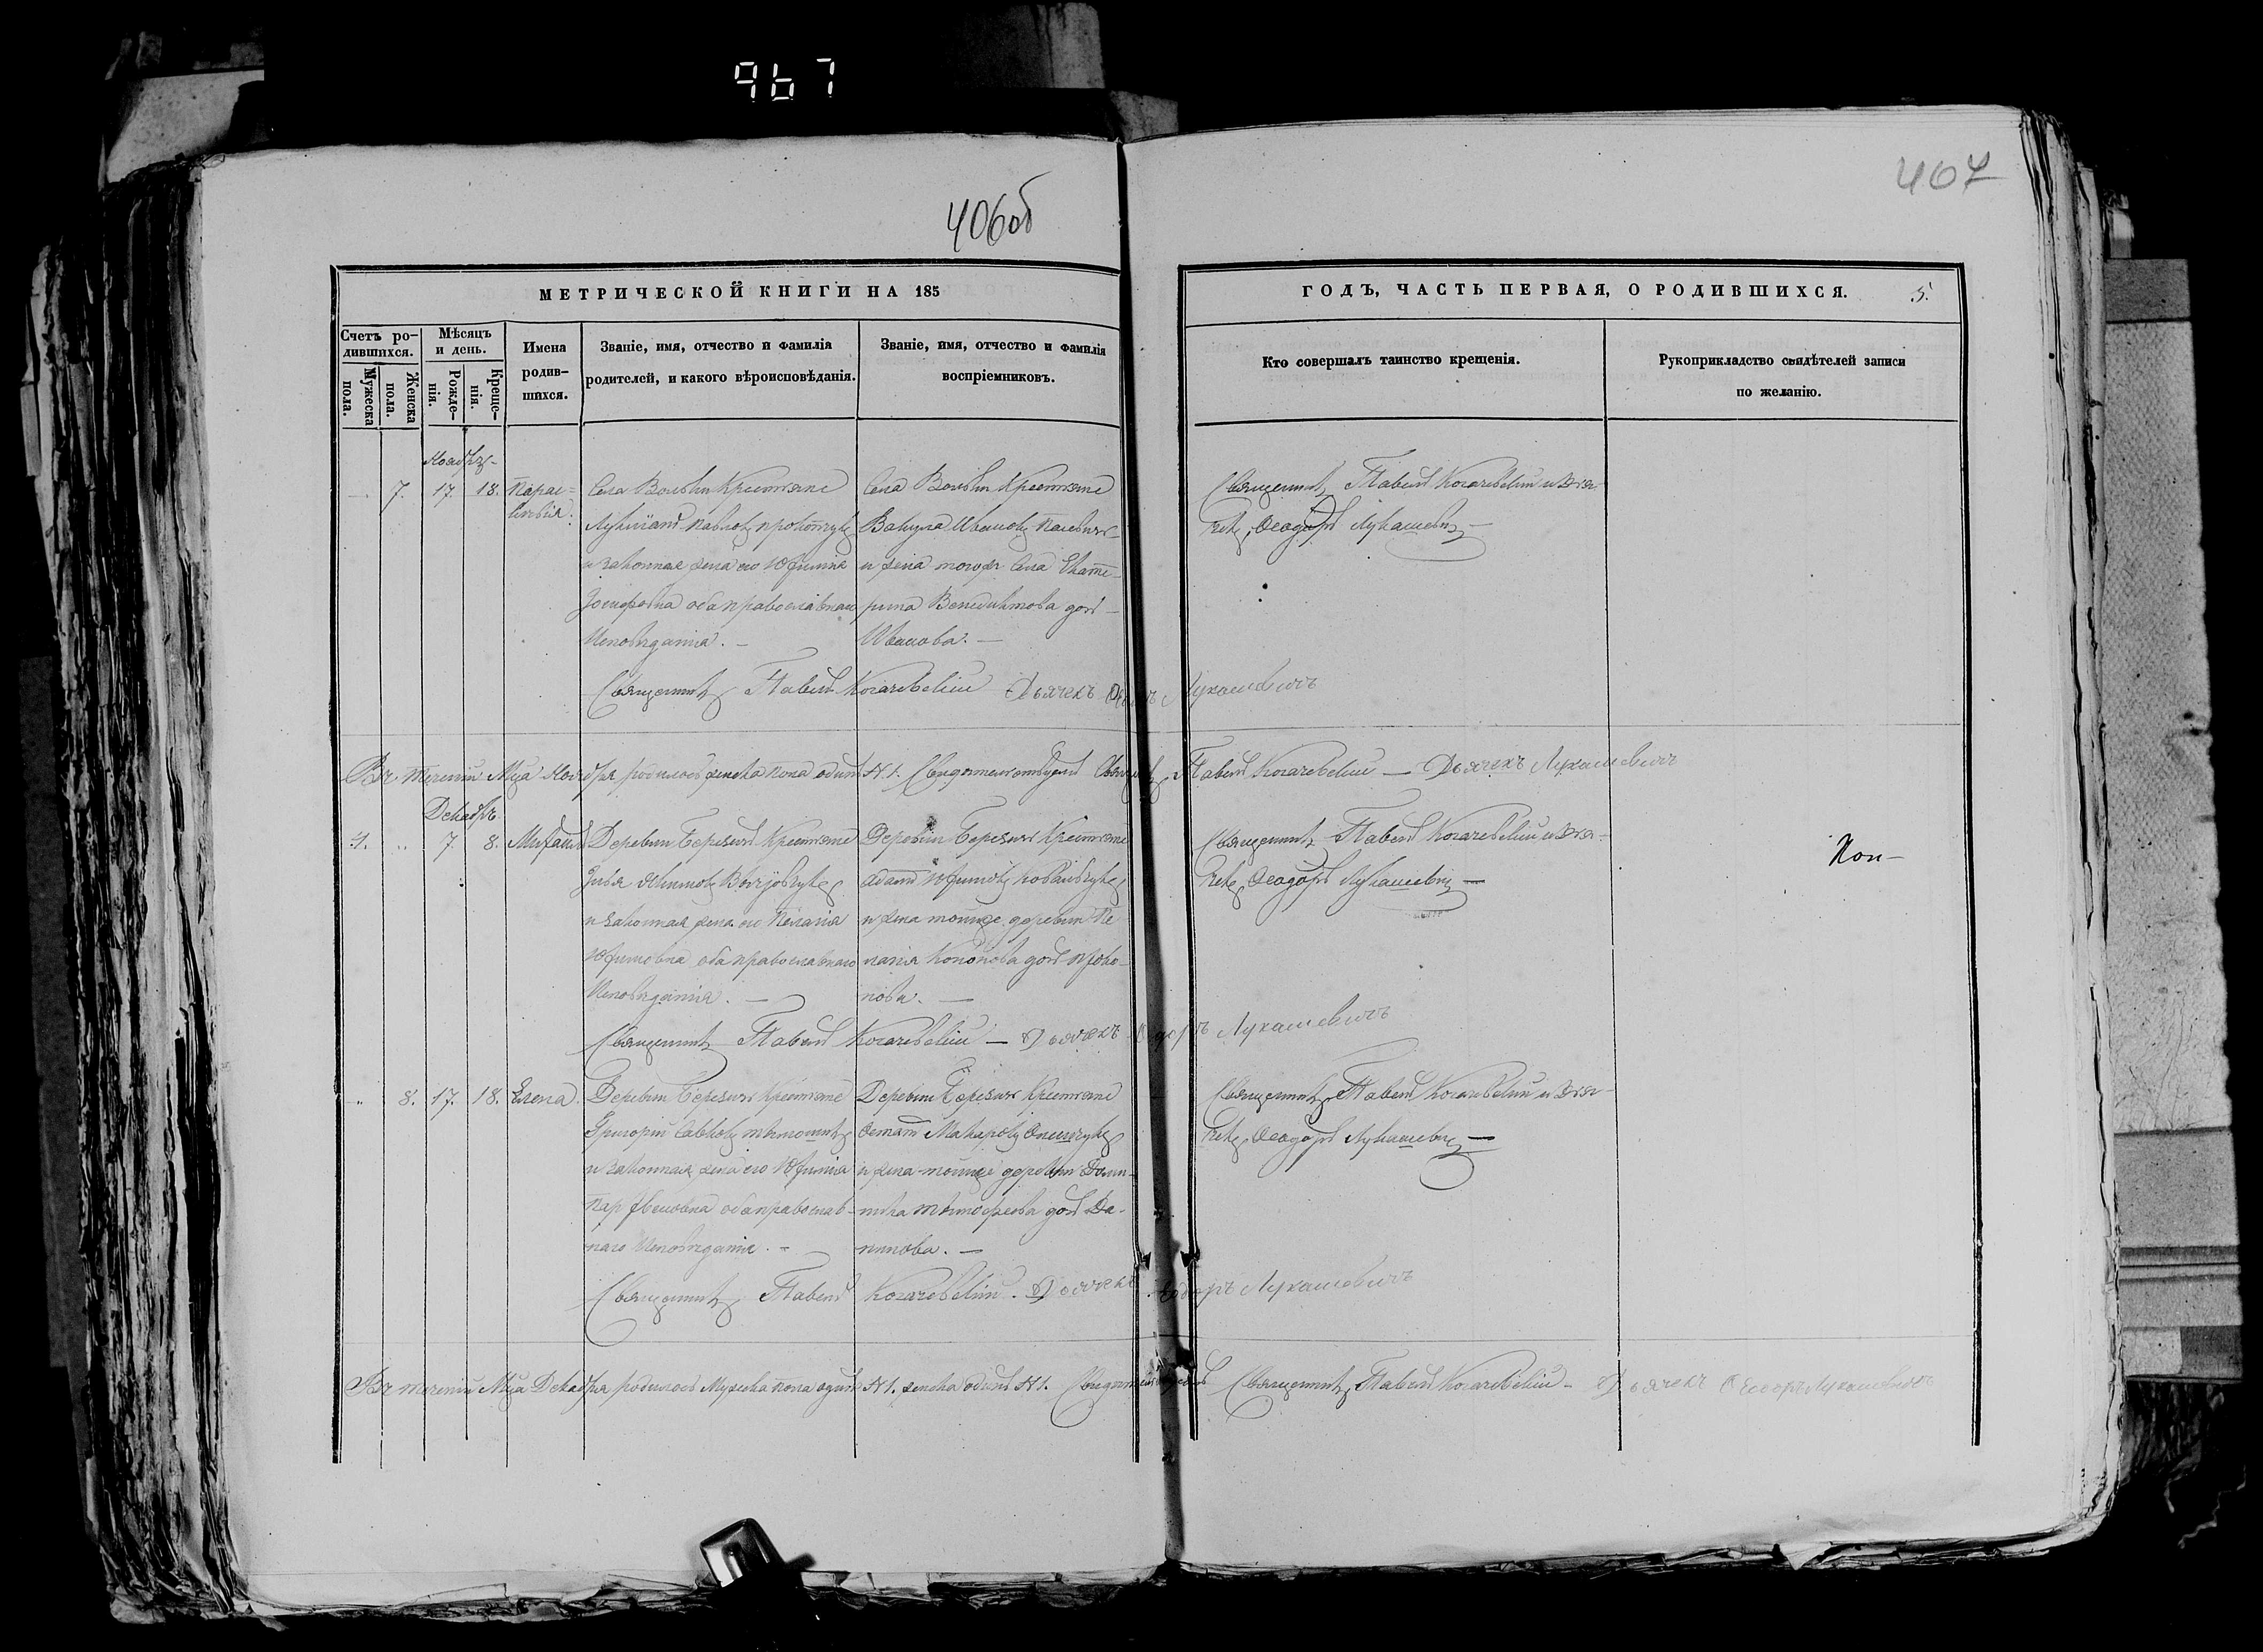 967
406об
407
МЕТРИЧЕСКОЙ КНИГИ НА 185
ГОДЪ, ЧАСТЬ ПЕРВАЯ, О РОДИВШИХСЯ. 5.
Счетъ ро-
дившихся.
Мужеска
пола.
Женска
пола.
Мѣсяцъ
и день.
Рожде-
нія.
Креще-
нія.
Имена
родив-
шихся.
Званіе, имя, отчество и фамилія
родителей, и какого вѣроисповѣданія.
Званіе, имя, отчество и фамилія
воспріемниковъ.
Кто совершалъ таинство крещенія.
Рукоприкладство свидѣтелей записи
по желанію.
Ноябрь
7. 17. 18. Парас=
кевія.
Села Крестяне
Павловъ Прокопчукъ
и законная жена его Юфимія
Іосифовна оба православнаго
Исповѣданія. —
Села Крестяне
Вакула Ивановъ
и жена тогожъ Села Екате-
рина Венедиктова дочь
Иванова. —
Священникъ Павелъ Когачевскій и Дья-
чекъ Ѳеодоръ Лукашевичъ —
Священникъ Павелъ Когачевскій Дьячекъ Лукашевичъ
Въ теченіи Мца Ноября родилось женска пола одинъ N 1. Свидѣтельствуемъ Священникъ Павелъ Когачевскій — Дьячекъ Лукашевичъ
Декабрь
4. 7. 8. Михаилъ
Деревни Крестяне
Якимовъ
и законная жена его Пелагія
Юфимовна оба православнаго
Исповѣданія. —
Деревни Крестяне
Адамъ Юфимовъ Ковальчукъ
и жена тойже деревни Пе
лагія Кононова дочь Проко-
пова. —
Священникъ Павелъ Когачевскій и Дья-
чекъ Ѳеодоръ Лукашевичъ —
Поп—
Священникъ Павелъ Когачевскій — Дьячекъ Лукашевичъ
8. 17. 18. Елена.
Деревни Крестяне
Григорій Савковъ
и законная жена его Юфимія
Парфеновна оба православ-
наго Исповѣданія. —
Деревни Крестяне
Остапъ Макаровъ
и жена тойже деревни Доми-
ника Тимофеева дочь Да-
нилова. —
Священникъ Павелъ Когачевскій и Дья-
чекъ Ѳеодоръ Лукашевичъ —
Священникъ Павелъ Когачевскій. Дьячекъ Лукашевичъ
Въ теченіи Мца Декабря родилось Мужеска пола одинъ N 1. женска одинъ N 1. Священникъ Павелъ Когачевскій — Дьячекъ Ѳеодоръ Лукашевичъ